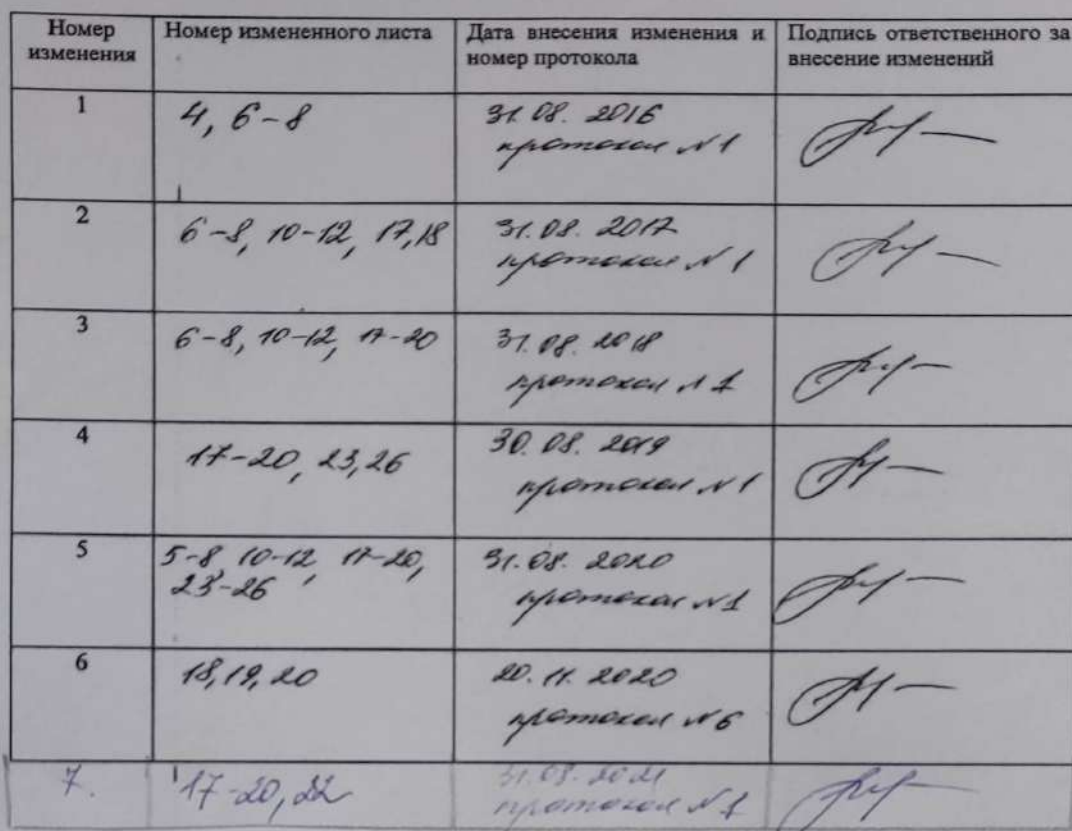 Номер изменения
Номер измененного листа
Дата внесения изменения и номер протокола
Подпись ответственного за внесение изменений
1
4, 6-8
31.08. 2016
протокол №1
2
6-8, 10-12, 17,18
31.08. 2017
протокол №1
3
6-8, 10-12, 17-20
31.08. 2018
протокол №1
4
17-20, 23,26
30.08. 2019
протокол №1
5
5-8, 10-12, 17-20,
23-26
31.08. 2020
протокол №1
6
18,19,20
20.11. 2020
протокол №6
7.
17-20, 22
31.08.2021
протокол №1